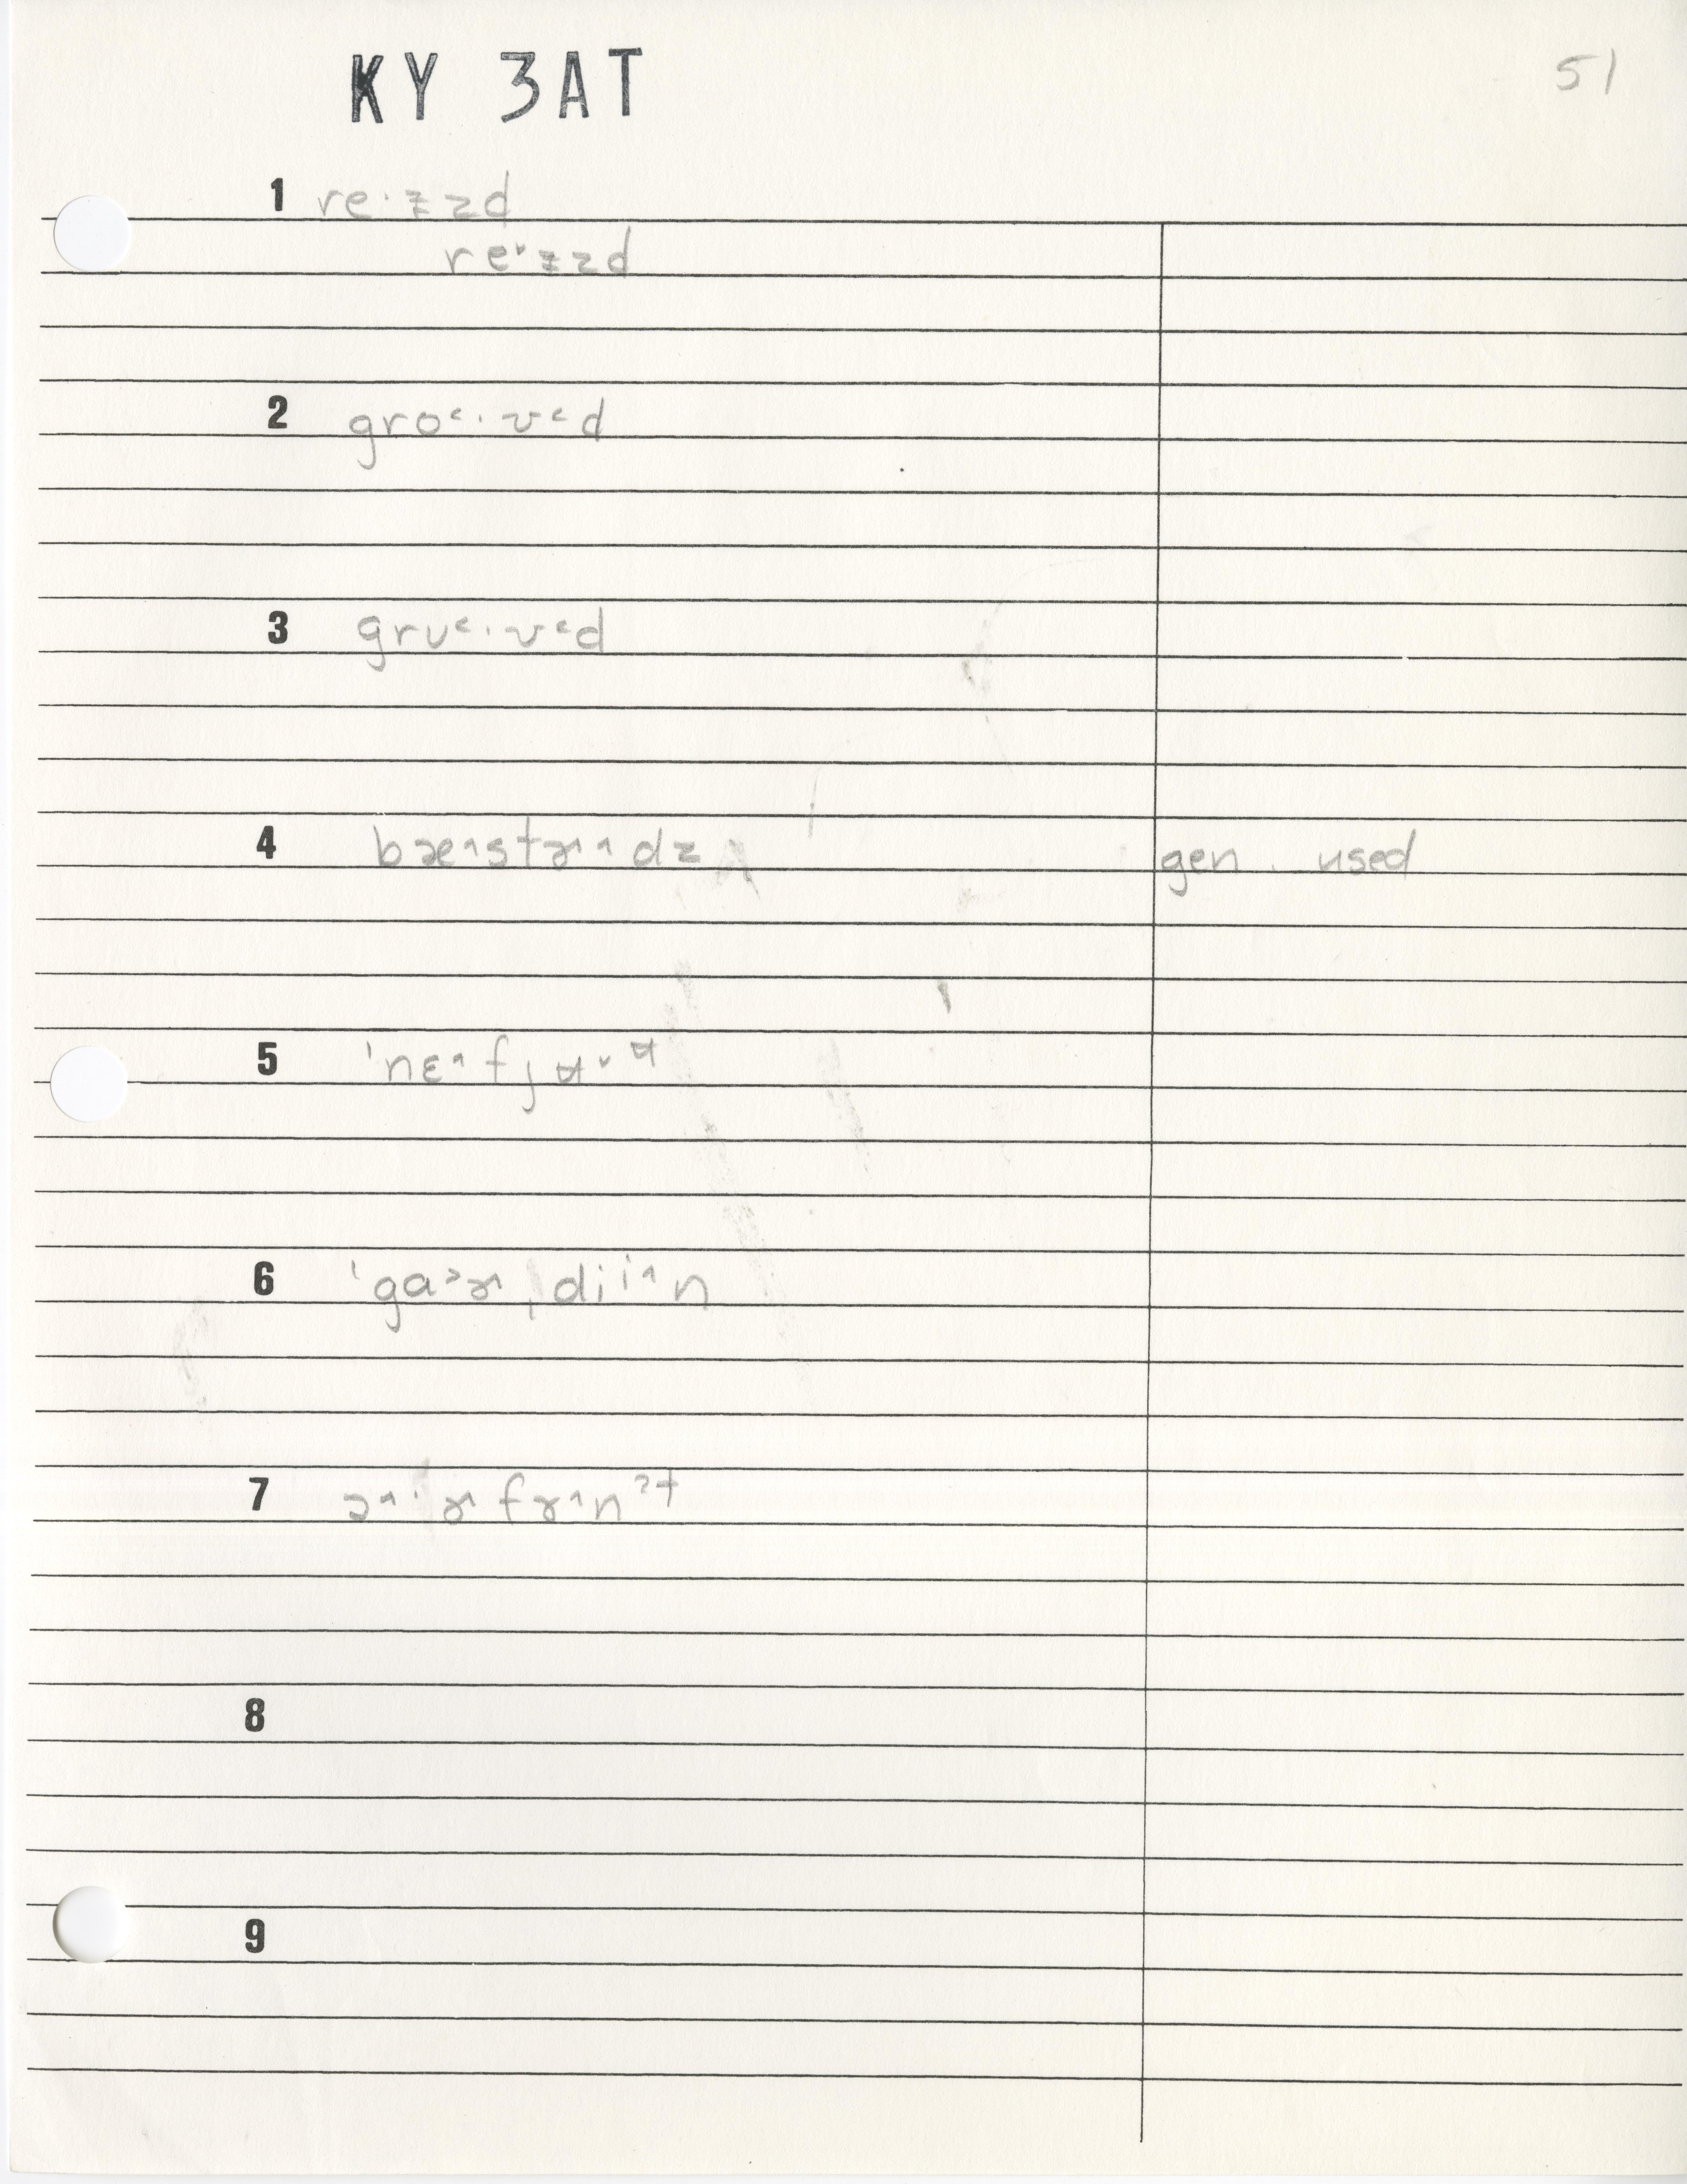 KY 3AT
51
1 re·ɪzzd
re·ɪzzd
2 gro˂·v˂d
3 grʋ˂·v˂d
4 bæ^stɚ^^dz gen. used
5 ˈnɛ^fjʉ˅ʉ
6 ˈga˃ɚ^ˌdii^n
7 ɔ^·ɚ^frɚ^nʔt
8
9